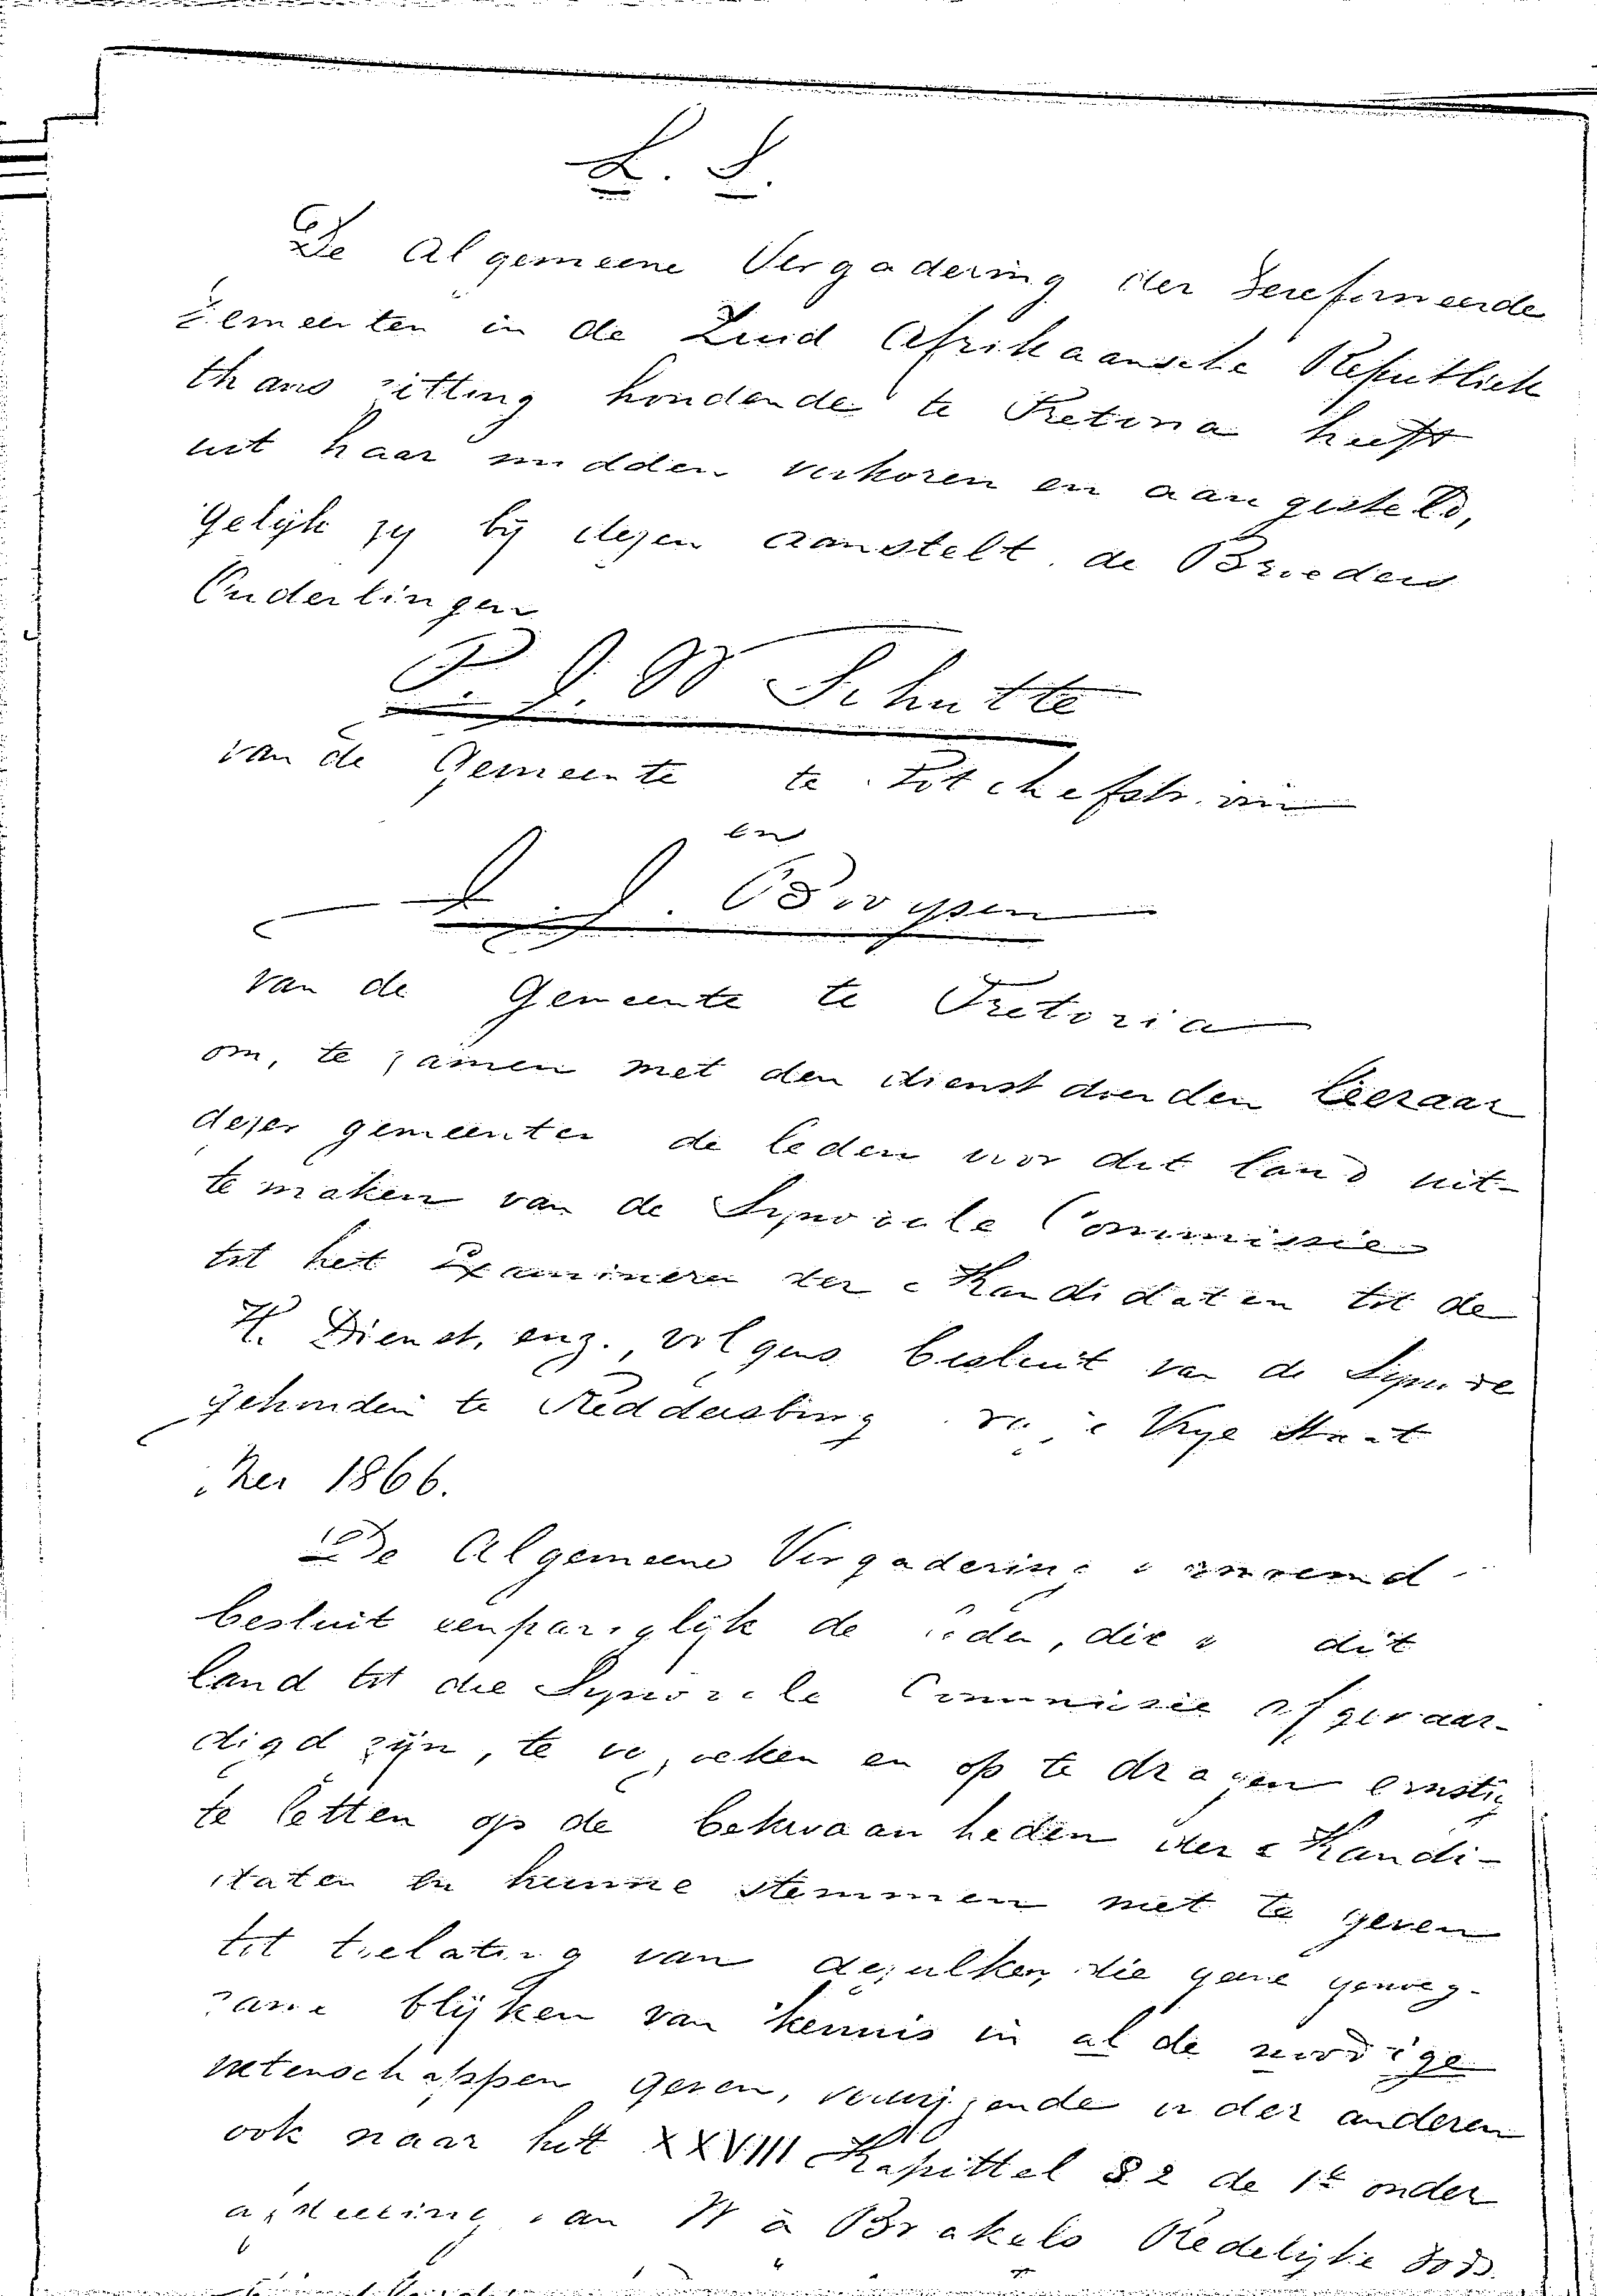 L. S.
De Algemeene Vergadering der Gereformeerde
Gemeenten in de Zuid Afrikaansche Republiek
thans zitting houdende te Pretoria heeft
uit haar midden verkoren en aangesteld,
Gelijk zy bij dezen aanstelt de Broeders
Ouderlingen
P. J. W Schutte
van de Gemeente te Potchefstroom
en
J. J. Booysen
van de Gemeente te Pretoria
om, te zamen met den dienstdoenden Leeraar
dezer gemeenten de leden voor dit land uit-
te maken van de Synodale Commissie
tot het Examineren der Kandidaten tot de
H. Dienst, enz., volgens besluit van de Synode
gehouden te Reddersburg Vrye Staat
Mei 1866.
De Algemeene Vergadering
besluit eenpariglijk de leden, die dit
land tot die Synodale Commissie afgevaar-
digd zijn, te verzoeken en op te dragen ernstig
te letten op de bekwaamheden der Kandi-
daten en hunne stemmen niet te geven
tot toelating van dezulken, die geene genoeg-
zame blijken van kennis in al de noodige
wetenschappen geven, verwijzende onder anderen
ook naar het XXVIII Kapittel § 2 de 1te onder
afdeeling van W à Brakels Redelijke Godsd.